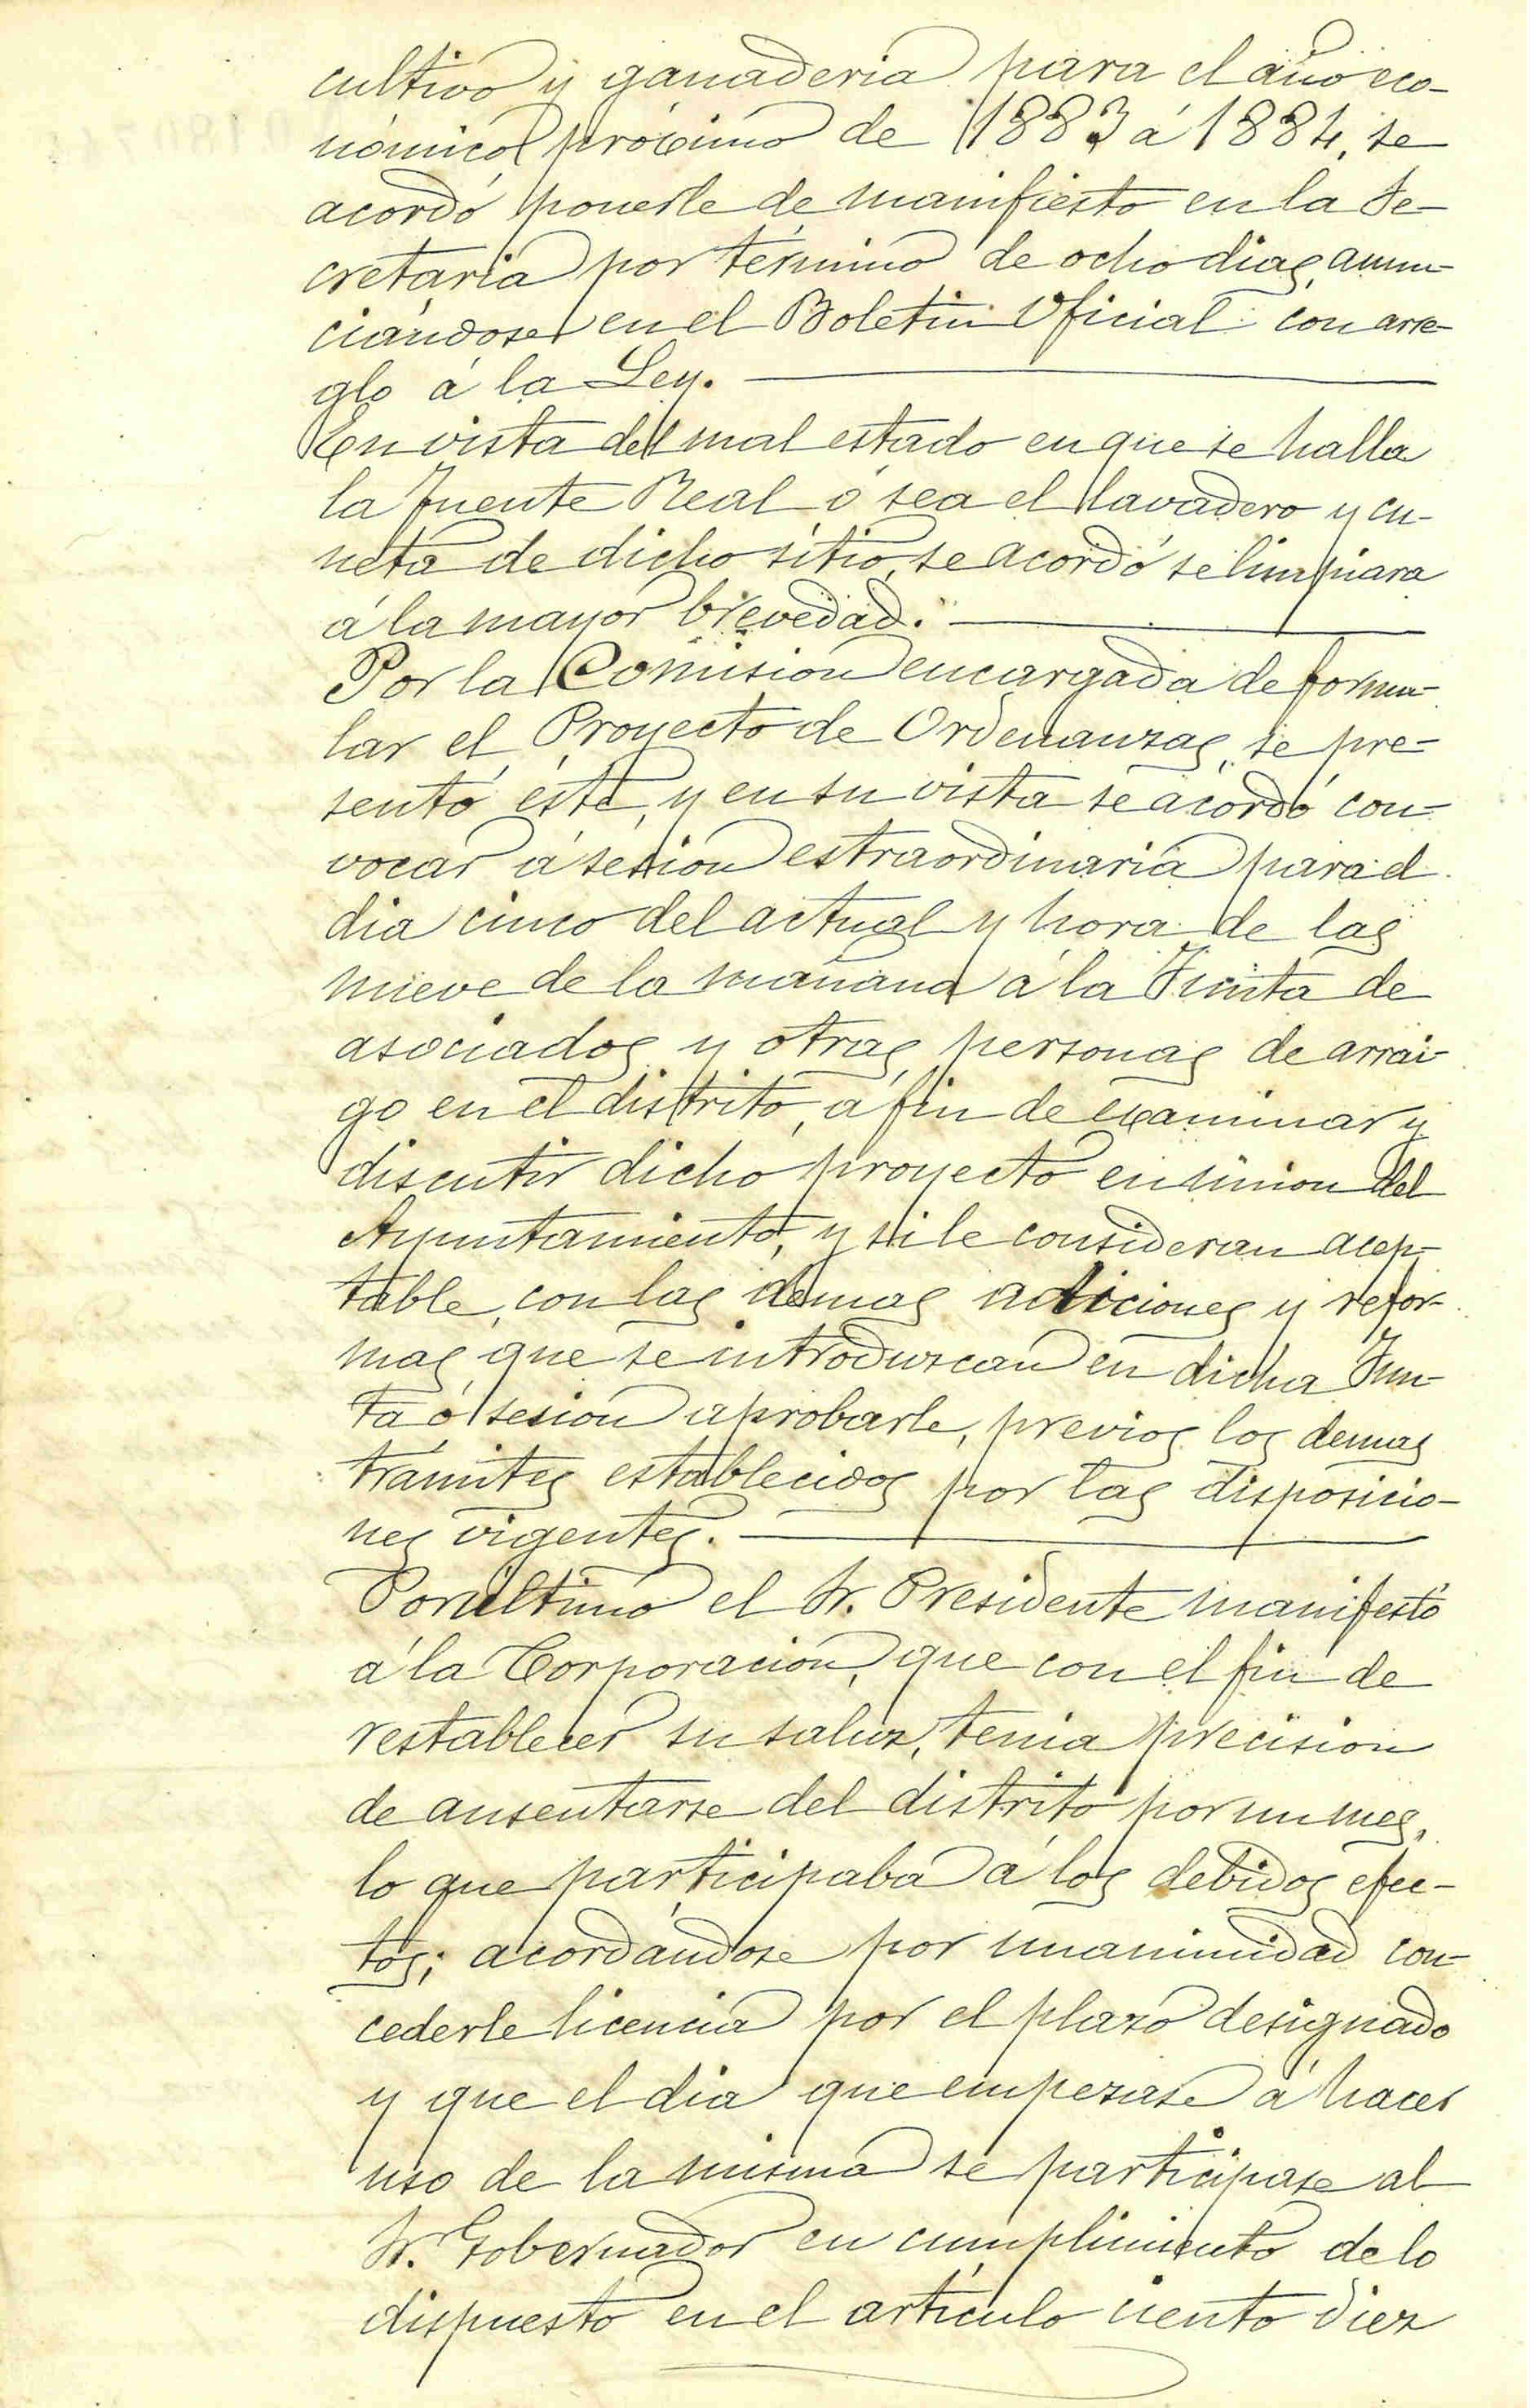 cultivo y ganaderia para el año eco-
nómico próximo de 1883 á 1884, se
acordó ponerle de manifiesto en la Se-
cretaria por término de ocho dias, anun-
ciándose en el Boletin Oficial con arre-
glo á la Ley.
En vista del mal estado en que se halla
la fuente Real ó sea el lavadero y cu-
neta de dicho sitio, se acordó se limpiara
á la mayor brevedad.
Por la Comision encargada de formu-
lar el Proyecto de Ordenanzas, se pre-
sentó éste, y en su vista se acordó con-
vocar á sesion estraordinaria para el
dia cinco del actual y hora de las
nueve de la mañana á la Junta de
asociados y otras personas de arrai-
go en el distrito, á fin de examinar y
discutir dicho proyecto en union del
Ayuntamiento, y si le consideran acep-
table, con las demas adiciones y refor-
mas que se introduzcan en dicha Jun-
ta ó sesion aprobarle, previos los demas
trámites establecidos por las disposicio-
nes vigentes.
Por último el Sr. Presidente manifestó
á la Corporacion, que con el fin de
restablecer su saluz, tenia precision
de ausentarse del distrito por un mes,
lo que participaba á los debidos efec-
tos; acordándose por unanimidad con-
cederle licencia por el plazo designado
y que el dia que empezase á hacer
uso de la misma se participase al
Sr. Gobernador en cumplimiento de lo
dispuesto en el artículo ciento diez